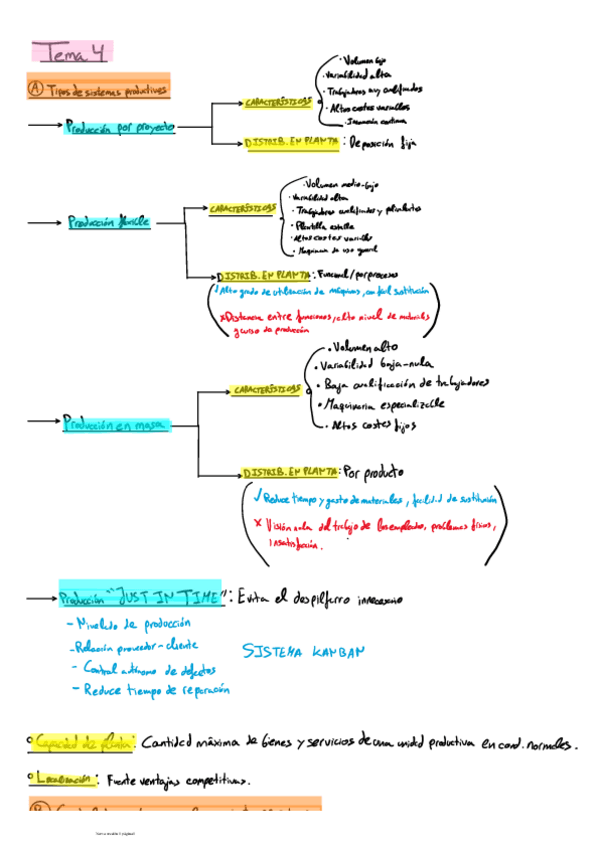 Tema 4
A Tipos de sistemas productivos
Producción por proyecto
CARACTERÍSTICAS
· Volumen bajo
· Variabilidad alta
· Trabajadores muy cualificados
· Altos costes variables
DISTRIB. EN PLANTA: De posición fija
Producción flexible
CARACTERÍSTICAS
· Volumen medio-bajo
· Variabilidad alta
· Trabajadores cualificados y polivalentes
· Plantilla estable
· Altos costes variables
· Maquinaria de uso general
DISTRIB. EN PLANTA: Funcional/por procesos
✓ Alto grado de utilización de máquinas, con fácil sustitución
x Distancia entre funciones, alto nivel de materiales
y curso de producción
Producción en masa
CARACTERÍSTICAS
· Volumen alto
· Variabilidad baja-nula
· Baja cualificación de trabajadores
· Maquinaria especializable
· Altos costes fijos
DISTRIB. EN PLANTA: Por producto
✓ Reduce tiempo y gasto de materiales, facilidad de sustitución
x Visión nula del trabajo de los empleados, problemas físicos,
insatisfacción.
Producción "JUST IN TIME": Evita el despilfarro innecesario
- Nivelado de producción
- Relación proveedor-cliente
- Control autónomo de defectos
- Reduce tiempo de reparación
SISTEMA KANBAN
Capacidad de planta: Cantidad máxima de bienes y servicios de una unidad productiva en cond. normales.
Localización: Fuente ventajas competitivas.